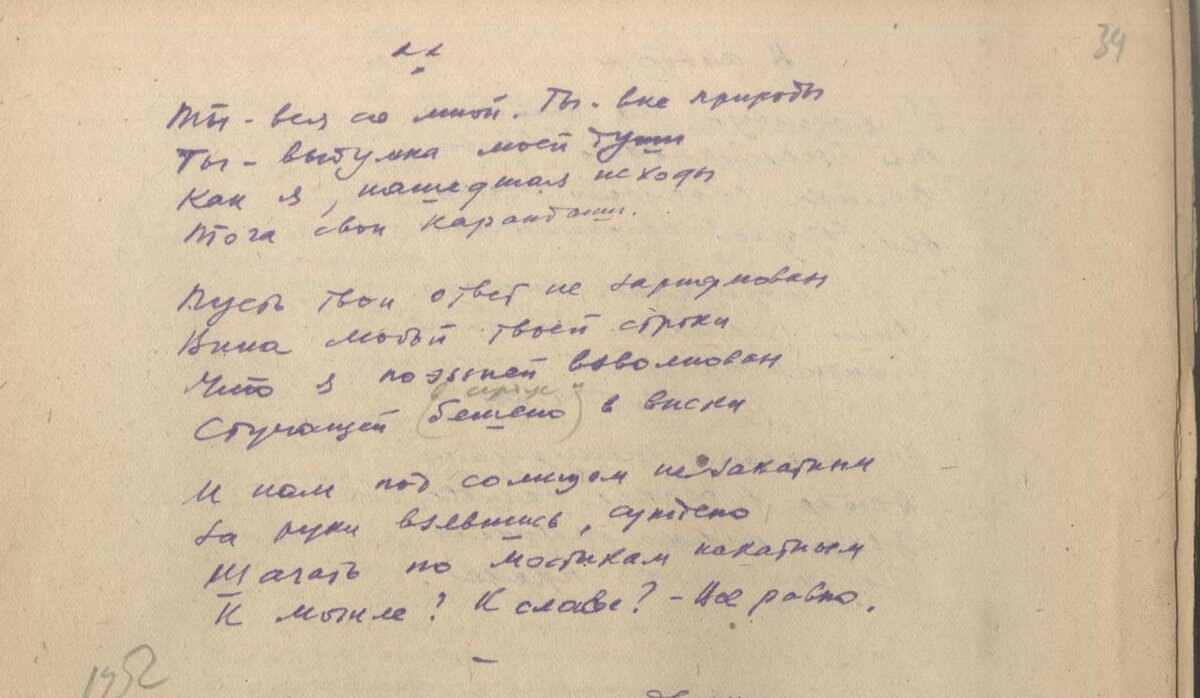 34
* *
*
Ты - вся со мной. Ты - вне природы
Ты - выдумка моей души
Как я, нашедшая исходы
Точа свои карандаши.
Пусть твой ответ не зарифмован
Вина любой твоей строки
Что я поэзией взволнован
в сердце и
Стучащей (бешено) в виски
И нам под солнцем незакатным
За руки взявшись, суждено
Шагать по мостикам накатным
К могиле? К славе? - Все равно.
-
1952